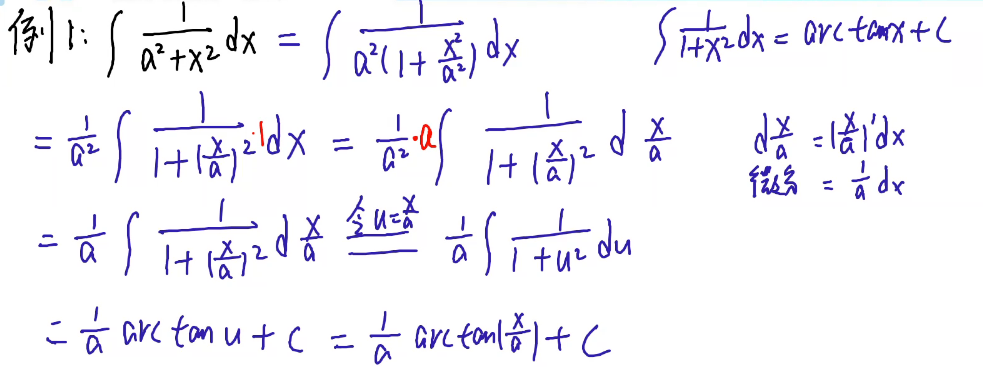 例1: ∫ 1/(a²+x²) dx = ∫ 1/(a²(1+x²/a²)) dx    ∫ 1/(1+x²) dx = arctanx+C
= 1/a² ∫ 1/(1+(x/a)²) ·1dx = 1/a² ·a ∫ 1/(1+(x/a)²) d x/a    d x/a = (x/a)'dx
微分 = 1/a dx
= 1/a ∫ 1/(1+(x/a)²) d x/a 令u=x/a = 1/a ∫ 1/(1+u²) du
= 1/a arctan u + C = 1/a arctan(x/a) + C